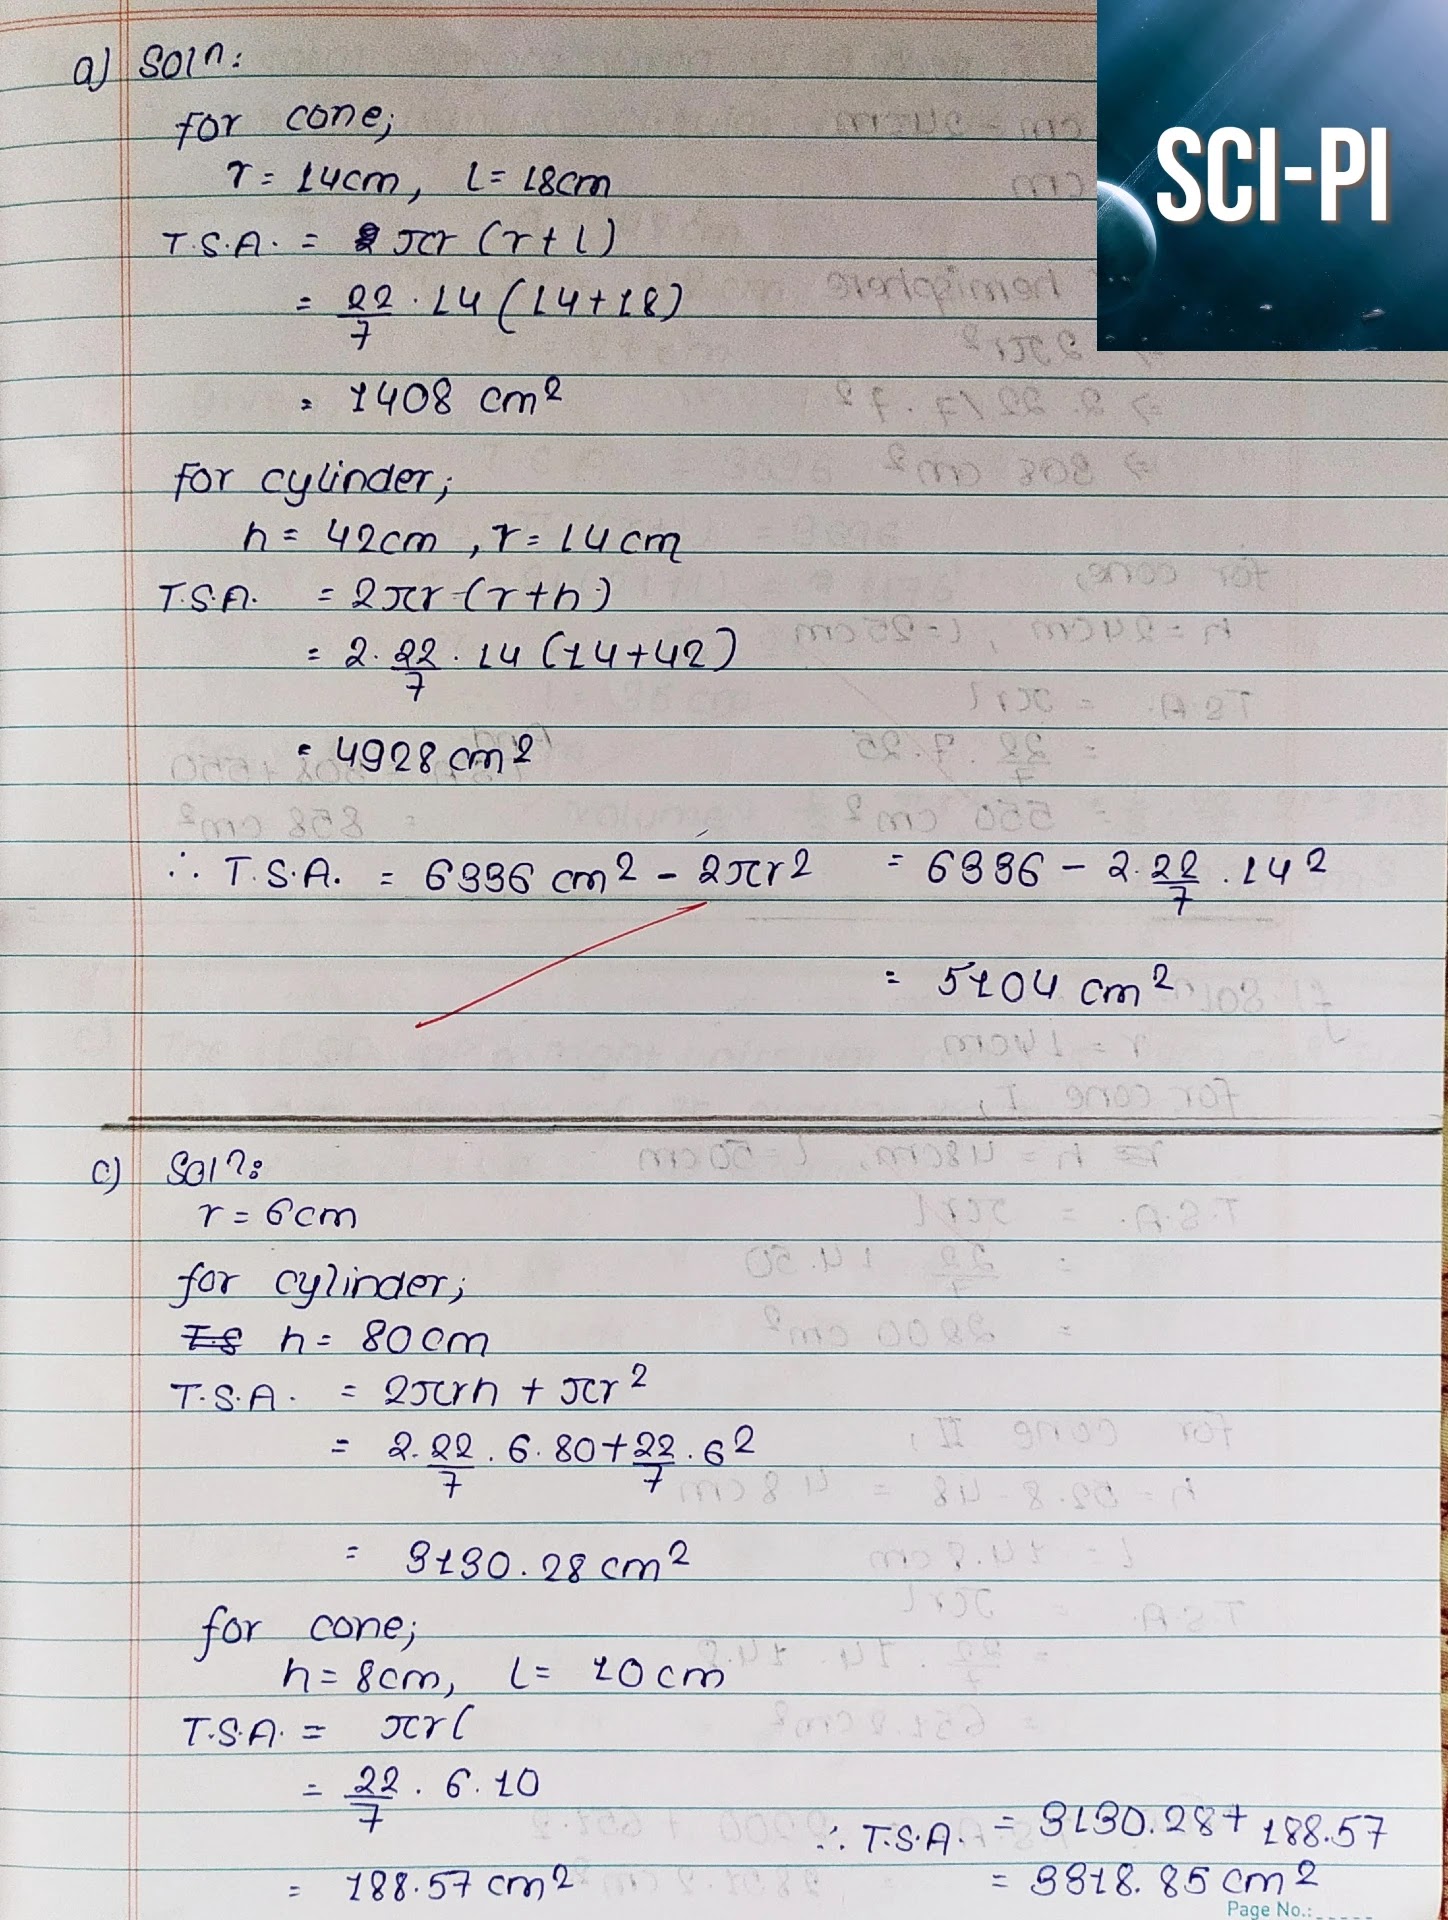 a) Solⁿ:
for cone;
r = 14cm, l = 18cm
T.S.A. = πr (r + l)
= 22/7 . 14 (14+18)
= 1408 cm²
for cylinder;
h = 42cm , r = 14cm
T.S.A. = 2πr (r+h)
= 2. 22/7 . 14 (14+42)
= 4928 cm²
∴ T.S.A. = 6336 cm² - 2πr² = 6336 - 2. 22/7 . 14²
= 5104 cm²
c) Solⁿ:
r = 6cm
for cylinder;
T.S h = 80cm
T.S.A. = 2πrh + πr²
= 2. 22/7 . 6. 80 + 22/7 . 6²
= 3130.28 cm²
for cone;
h = 8cm, l = 10cm
T.S.A. = πrl
= 22/7 . 6. 10
= 188.57 cm²
∴ T.S.A. = 3130.28 + 188.57
= 3318.85 cm²
Page No.:
SCI-PI